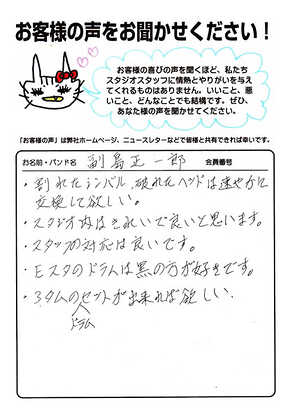 お客様の声をお聞かせください!
お客様の喜びの声を聞くほど、私たち
スタジオスタッフに情熱とやりがいを与え
てくれるものはありません。いいこと、悪
いこと、どんなことでも結構です。ぜひ、
あなた様の声を聞かせてください。
「お客様の声」は弊社ホームページ、ニュースレターなどで皆様と共有できれば幸いです。
お名前・バンド名 副島正一郎 会員番号
・割れたシンバル、破れたヘッドは速やかに
交換して欲しい。
・スタジオ内はきれいで良いと思います。
・スタッフの対応は良いです。
・Eスタのドラムは黒の方が好きです。
・3タムのセットが出来れば欲しい。
ドラム